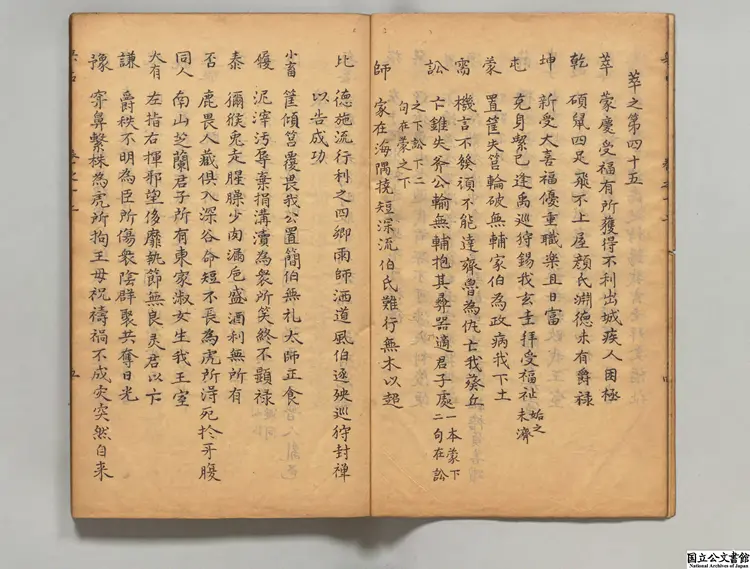 萃之第四十五
萃 蒙慶受福有所獲得不利出城疾人困極
乾 碩鼠四足飛不上屋顔氏淵德未有爵禄
坤 新受大喜福優重職樂且日富
屯 克身繫己逢禹巡狩錫我玄圭拝受福祉
始之未濟
蒙 置筐失筥輪破無輔家伯為政病我下土
需 機言不發頑不能達齊魯為仇亡我葵丘
訟 亡錐失斧公輸無輔抱其彛器適君子處
一本蒙下二句在訟
之下訟下二句在蒙之下
師 家在海隅橈短深流伯氏難行無木以趨
比 德施流行利之四卿雨師洒道風伯逐殃巡狩封禅
以告成功
小畜 筐傾筥覆畏我公置簡伯無礼太師正食
履 泥滓汚辱棄捐溝瀆為衆所笑終不顕禄
泰 獼猴兔走腥臊少肉漏巵盛酒利無所有
否 鹿畏人蔵俱入深谷命短不長為虎所得死於牙腹
同人 南山芝蘭君子所有東家淑女生我王室
大有 左指右揮邪侈靡執節無良灵君以亡
謙 爵秩不明為臣所傷衆陰群聚共奪日光
豫 穿鼻繫株為虎所拘王母祝禱禍不成灾突然自来
国立公文書館
National Archives of Japan